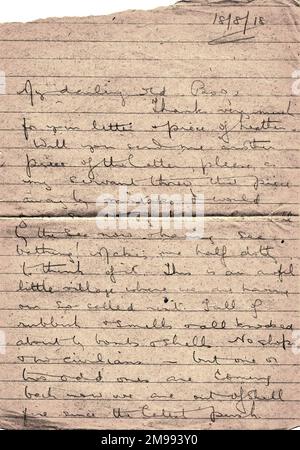 18/8/18
My darling old
Thanks very much
for your letter & piece of heather
Will you send me another
piece of the heather, please as
my servant threw that piece
away by mistake. I would
the sea now having sea
bathing! Makes me half dotty
to think of it. This is an awful
little village where we are having
our so called rest. Full of
rubbish & smells & all knocked
about by bombs & shells. No shops
& no civilians – but one or
two odd ones are coming
back now we are out of shell
fire since the latest push.
alamy
Image ID: 2M993Y0
www.alamy.com